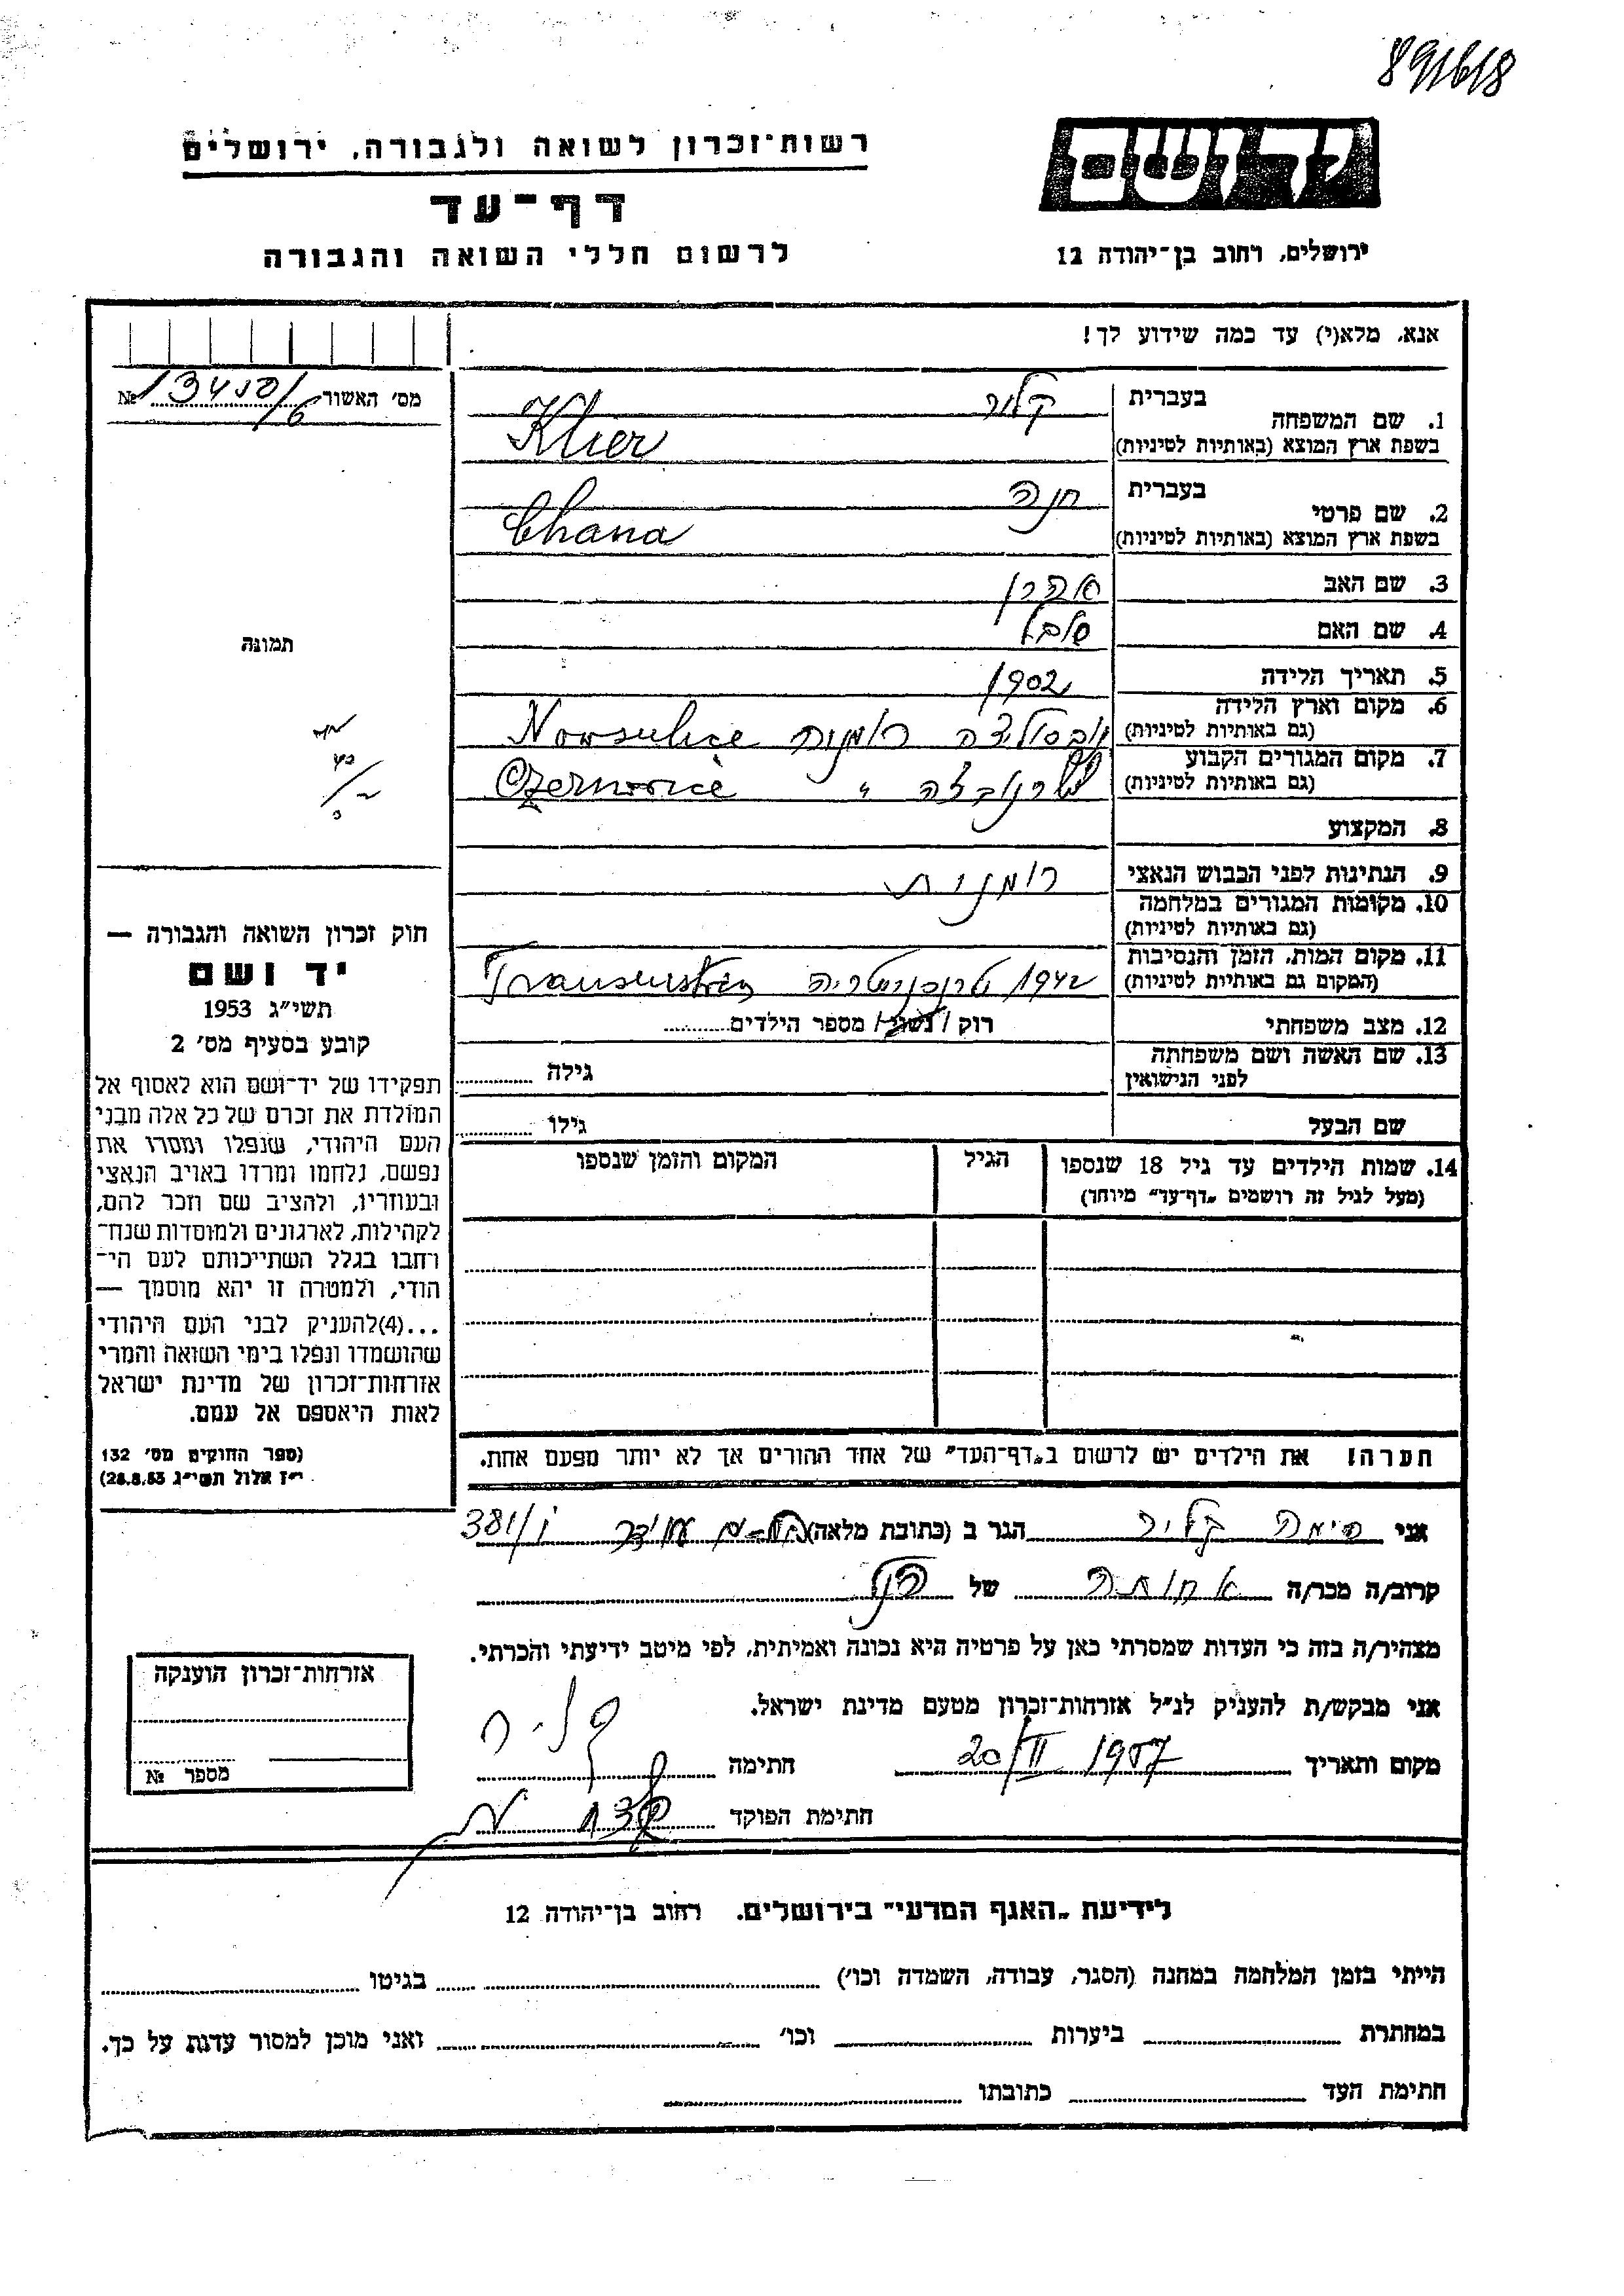 891618
יד ושם
רשות־זכרון לשואה ולגבורה, ירושלים
דף־עד
לרשום חללי השואה והגבורה
ירושלים, רחוב בן־יהודה 12
אנא, מלא(י) עד כמה שידוע לך!
מס׳ האשור № 13450/6
1. שם המשפחה
בעברית קליר
בשפת ארץ המוצא (באותיות לטיניות) Klier
2. שם פרטי
בעברית חנה
בשפת ארץ המוצא (באותיות לטיניות) Chana
3. שם האב אהרן
4. שם האם
5. תאריך הלידה 1902
6. מקום וארץ הלידה
(גם באותיות לטיניות) רומניה Nowsulice
7. מקום המגורים הקבוע
(גם באותיות לטיניות) טשרנוביצה " Czernovice
8. המקצוע
9. הנתינות לפני הכבוש הנאצי רומנית
10. מקומות המגורים במלחמה
(גם באותיות לטיניות)
11. מקום המות, הזמן והנסיבות
(המקום גם באותיות לטיניות) 1942 טרנסניסטריה
12. מצב משפחתי רוק / נשוי / מספר הילדים
13. שם האשה ושם משפחתה
לפני הנישואין גילה
שם הבעל גילו
14. שמות הילדים עד גיל 18 שנספו הגיל המקום והזמן שנספו
(מעל לגיל זה רושמים „דף־עד” מיוחד)
הערה! את הילדים יש לרשום ב„דף־העד” של אחד ההורים אך לא יותר מפעם אחת.
תמונה
חוק זכרון השואה והגבורה —
יד ושם
תשי״ג 1953
קובע בסעיף מס׳ 2
תפקידו של יד־ושם הוא לאסוף אל
המולדת את זכרם של כל אלה מבני
העם היהודי, שנפלו ומסרו את
נפשם, נלחמו ומרדו באויב הנאצי
ובעוזריו, ולהציב שם וזכר להם,
לקהילות, לארגונים ולמוסדות שנח־
רחבו בגלל השתייכותם לעם הי־
הודי, ולמטרה זו יהא מוסמך —
...(4)להעניק לבני העם היהודי
שהושמדו ונפלו בימי השואה והמרי
אזרחות־זכרון של מדינת ישראל
לאות היאספם אל עמם.
(ספר החוקים מס׳ 132
י״ז אלול תשי״ג 28.8.53)
אני קליר הגר ב (כתובת מלאה) 381/
קרוב/ה מכר/ה אחותה של
מצהיר/ה בזה כי העדות שמסרתי כאן על פרטיה היא נכונה ואמיתית, לפי מיטב ידיעתי והכרתי.
אני מבקש/ת להעניק לנ״ל אזרחות־זכרון מטעם מדינת ישראל.
מקום ותאריך 20/II 1957 חתימה
חתימת הפוקד
אזרחות־זכרון הוענקה
מספר №
לידיעת „האגף המדעי” בירושלים, רחוב בן־יהודה 12
הייתי בזמן המלחמה במחנה (הסגר, עבודה, השמדה וכו׳) בגיטו
במחתרת ביערות וכו׳ ואני מוכן למסור עדות על כך.
חתימת העד כתובתו